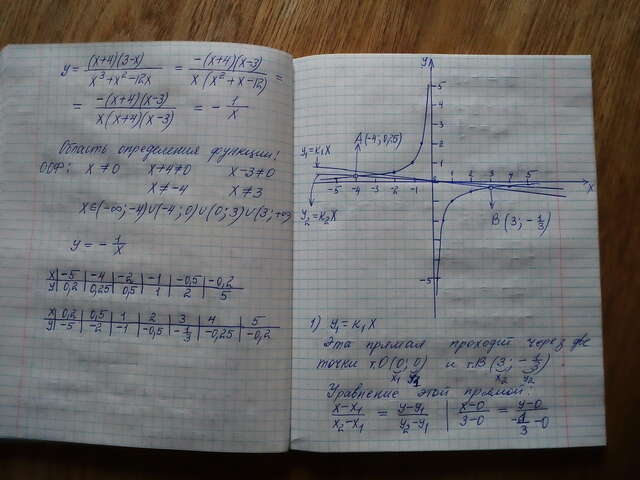 y = (x+4)(3-x) / x³+x²-12x = -(x+4)(x-3) / x(x²+x-12) =
= -(x+4)(x-3) / x(x+4)(x-3) = - 1/x
Область определения функции:
ООФ: x≠0 x+4≠0 x-3≠0
x≠-4 x≠3
x∈(-∞;-4)∪(-4;0)∪(0;3)∪(3;+∞
y = - 1/x
x -5 -4 -2 -1 -0,5 -0,2
y 0,2 0,25 0,5 1 2 5
x 0,2 0,5 1 2 3 4 5
y -5 -2 -1 -0,5 -1/3 -0,25 -0,2
y
5
4
3
2
1
A(-4;0,25)
y₁=k₁x
-5 -4 -2 -1 1 2 3 4 5 x
y₂=k₂x
B(3; -1/3)
-5
1) y₁=k₁x
Эта прямая проходит через две
точки т.O(0; 0) и т.B(3; -1/3).
x₁ y₁ x₂ y₂
Уравнение этой прямой:
x-x₁ / x₂-x₁ = y-y₁ / y₂-y₁ | x-0 / 3-0 = y-0 / -1/3-0